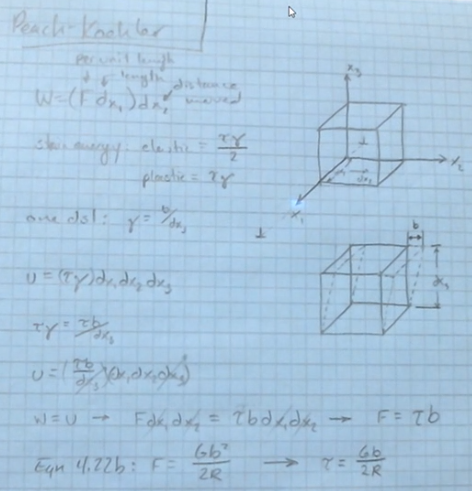 Peach-Koehler
per unit length
length
distance moved
W=(F dx₁)dx₂
strain energy: elastic = τγ/2
plastic = τγ
x₃
x₂
x₁
dx₂
⊥
one dsl: γ = b/dx₃
b
dx₃
U = (τγ)dx₁dx₂dx₃
τγ = τb/dx₃
U = (τb/dx₃)(dx₁dx₂dx₃)
W=U → Fdx₁dx₂ = τb dx₁dx₂ → F = τb
Eqn 4.22b: F = Gb²/2R → τ = Gb/2R